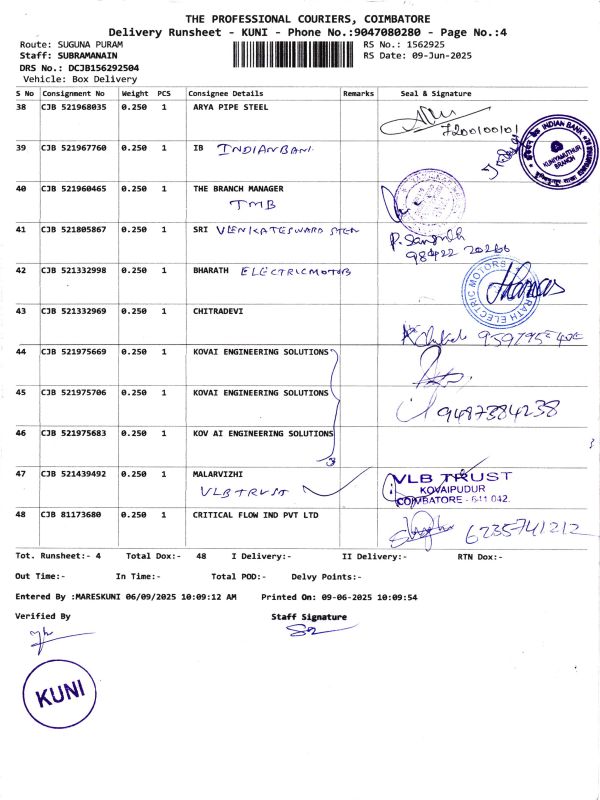 THE PROFESSIONAL COURIERS, COIMBATORE
Delivery Runsheet - KUNI - Phone No.:9047080280 - Page No.:4
Route: SUGUNA PURAM
RS No.: 1562925
Staff: SUBRAMANAIN
RS Date: 09-Jun-2025
DRS No.: DCJB156292504
Vehicle: Box Delivery
S No Consignment No Weight PCS Consignee Details Remarks Seal & Signature
38 CJB 521968035 0.250 1 ARYA PIPE STEEL
7200100101
39 CJB 521967760 0.250 1 IB INDIAN BANK
INDIAN BANK
KUNIYAMUTHUR
BRANCH
40 CJB 521960465 0.250 1 THE BRANCH MANAGER
TMB
41 CJB 521805867 0.250 1 SRI
42 CJB 521332998 0.250 1 BHARATH ELECTRIC MOTORS
BHARATH ELECTRIC MOTORS
43 CJB 521332969 0.250 1 CHITRADEVI
44 CJB 521975669 0.250 1 KOVAI ENGINEERING SOLUTIONS
45 CJB 521975706 0.250 1 KOVAI ENGINEERING SOLUTIONS
9487384238
46 CJB 521975683 0.250 1 KOV AI ENGINEERING SOLUTIONS
47 CJB 521439492 0.250 1 MALARVIZHI
VLB TRUST
VLB TRUST
KOVAIPUDUR
COIMBATORE - 641 042.
48 CJB 81173680 0.250 1 CRITICAL FLOW IND PVT LTD
6235741212
Tot. Runsheet:- 4 Total Dox:- 48 I Delivery:- II Delivery:- RTN Dox:-
Out Time:- In Time:- Total POD:- Delvy Points:-
Entered By :MARESKUNI 06/09/2025 10:09:12 AM Printed On: 09-06-2025 10:09:54
Verified By Staff Signature
KUNI